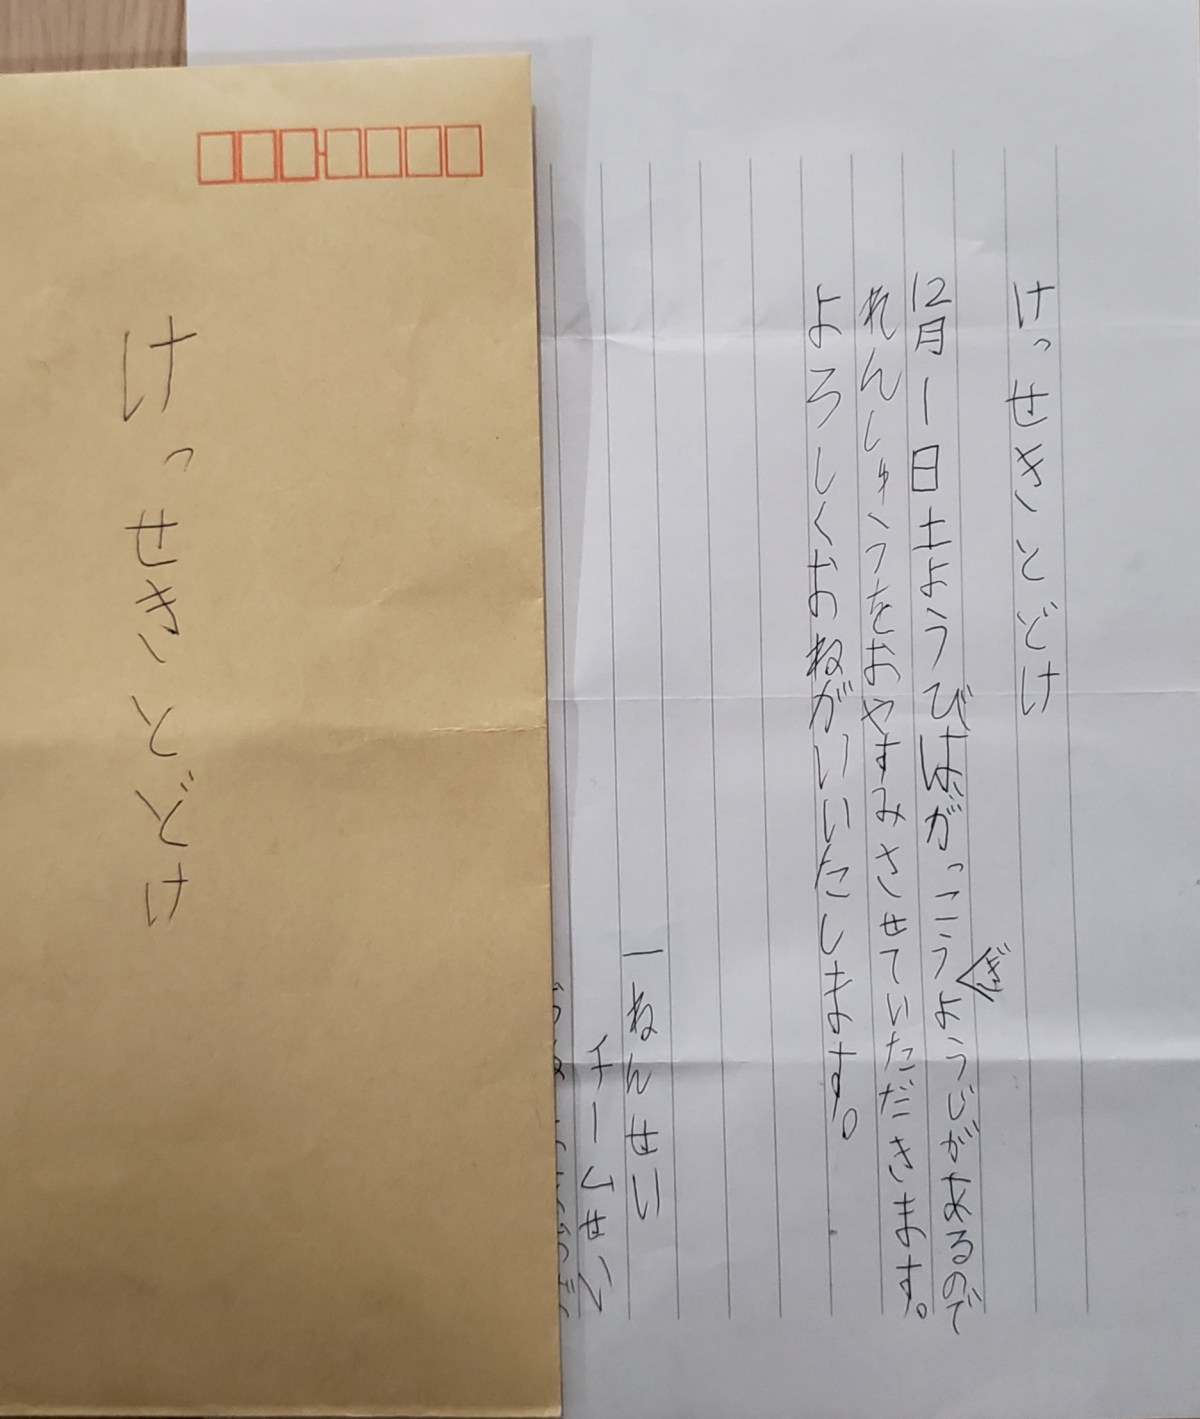 けっせきとどけ
12月1日土ようびはがっこうぎょうじがあるので
れんしゅうをおやすみさせていただきます。
よろしくおねがいいたします。
一ねんせい
チームせん
けっせきとどけ